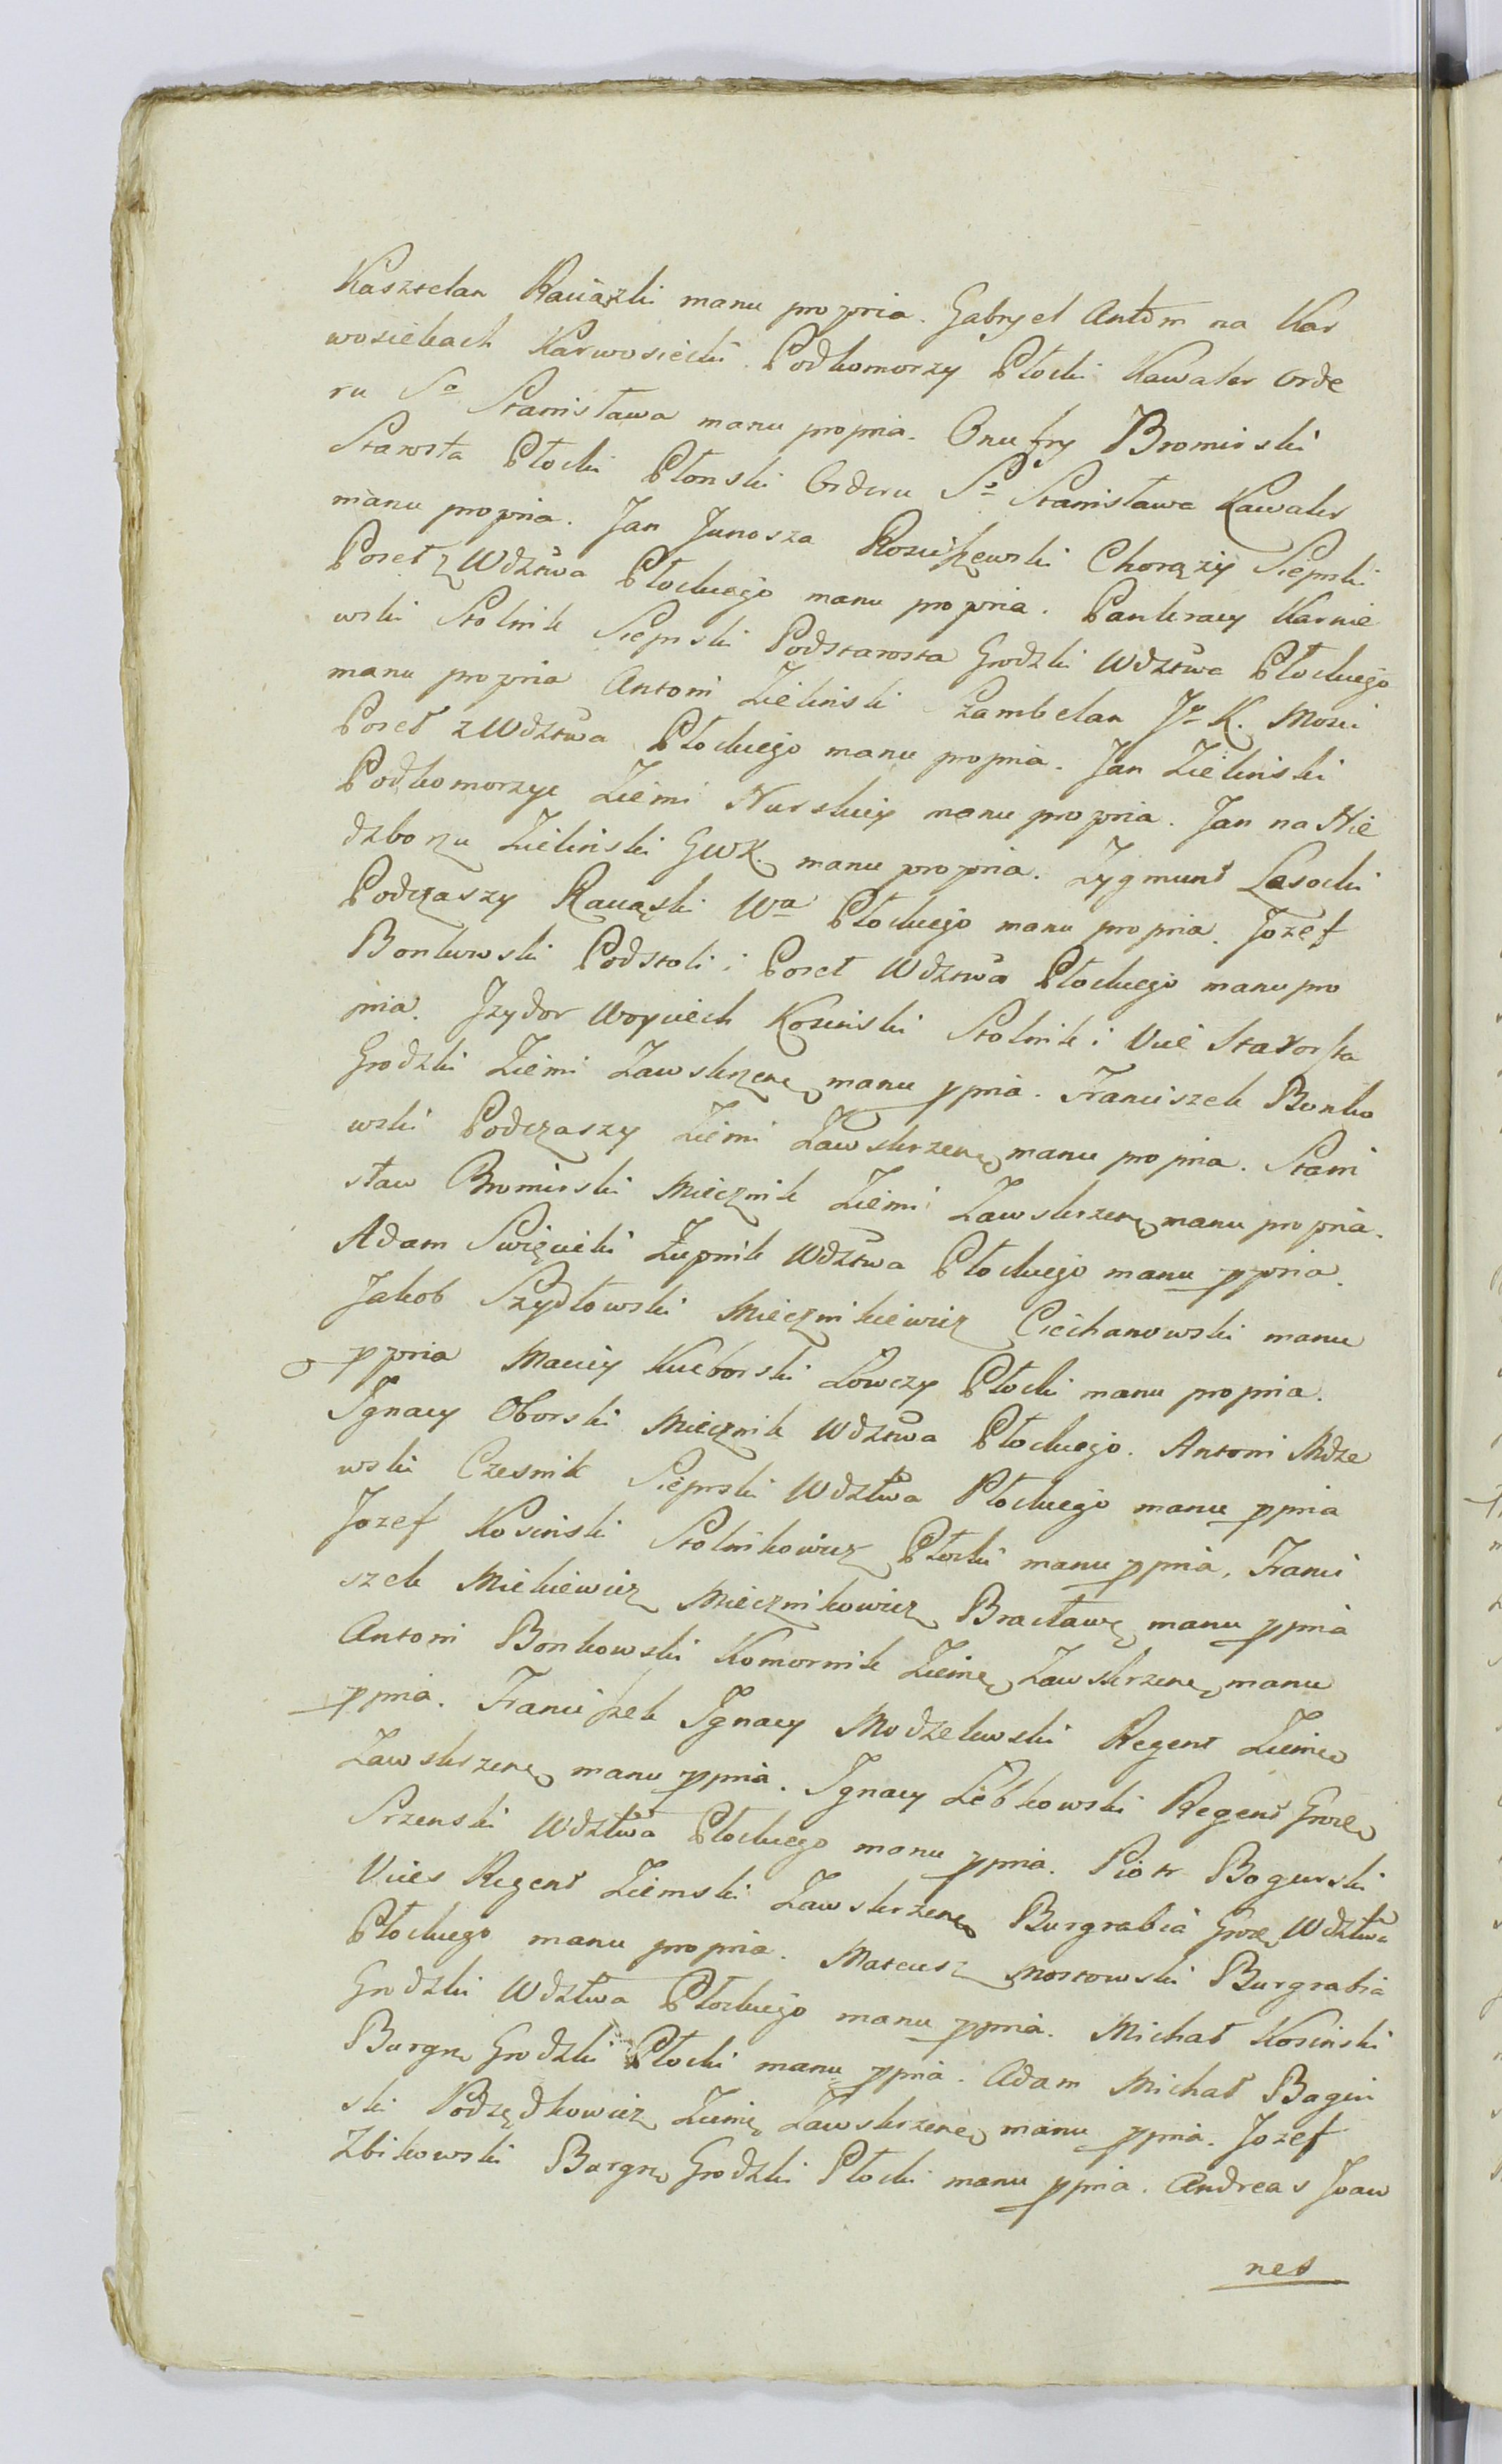 Kasztelan Raciązki manu propria. Gabryel Antoni na Kar
wosiekach Karwosiecki Podkomorzy Płocki Kawaler Orde
ru Sgo Stanisława manu propria. Onufry Bromirski
Starosta Płocki Płonski Orderu Sgo Stanisława Kawaler
manu propria. Jan Junosza Rosciszewski Chorązy Sieprski
Poseł z Wdztwa Płockiego manu propria. Pankracy Karnie
wski Stolnik Sieprski Podstarosta Grodzki Wdztwa Płockiego
manu propria Antoni Zielinski Szambelan Jgo K. Mosci
Poseł z Wdztwa Płockiego manu propria. Jan Zielinski
Podkomorzyc Ziemi Nurskiey manu propria. Jan na Nie
dzborzu Zielinski GWK. manu propria. Zygmunt Lasocki
Podczaszy Raciązki Wa Płockiego manu propria. Jozef
Bonkowski Podstoli i Poseł Wdztwa Płockiego manu pro
pria. Jzydor Woyciech Kosinski Stolnik i Vice Starosta
Grodzki Ziemi Zawskrzen manu ppria. Franciszek Bonko
wski Podczaszy Ziemi Zawskrzen manu propria. Stani
sław Bromirski Miecznik Ziemi Zawskrzen manu propria.
Adam Swięcicki Żupnik Wdztwa Płockiego manu ppria.
Jakob Szydłowski Miecznikiewicz Ciechanowski manu
ppria Maciey Kuczborski Łowczy Płocki manu propria.
Jgnacy Oborski Miecznik Wdztwa Płockiego. Antoni Mdze
wski Czesnik Sieprski Wdztwa Płockiego manu ppria
Jozef Kosinski Stolnikowicz Płocki manu ppria, Franci
szek Mickiewicz Miecznikowicz Bracław manu ppria
Antoni Bonkowski Komornik Ziem Zawskrzen manu
ppria. Franciszek Jgnacy Modzelewski Regent Ziem
Zawskrzen manu ppria. Jgnacy Lebkowski Regent Grodz
Srzenski Wdztwa Płockiego manu ppria. Piotr Bogurski
Vices Regent Ziemski Zawskrzen Burgrabia Grodz Wdztwa
Płockiego manu propria. Mateusz Mostowski Burgrabia
Grodzki Wdztwa Płockiego manu ppria. Michał Kosinski
Burgr Grodzki Płocki manu ppria. Adam Michał Bagin
ski Podsędkowicz Ziem Zawskrzen manu ppria. Jozef
Zbikowski Burgr Grodzki Płocki manu ppria. Andreas Joan
nes